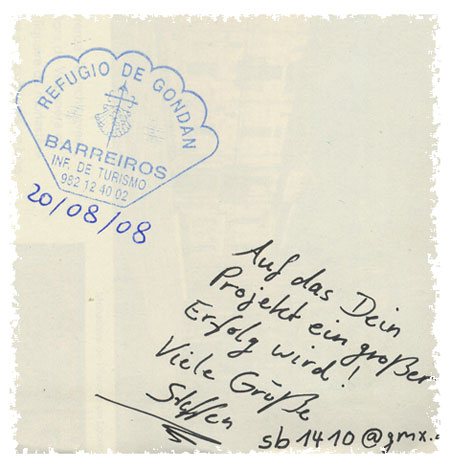 REFUGIO DE GONDAN
BARREIROS
INF. DE TURISMO
982 12 40 02
20/08/08
Auf das Dein
Projekt ein großer
Erfolg wird!
Viele Grüße
Steffen
sb1410@gmx.